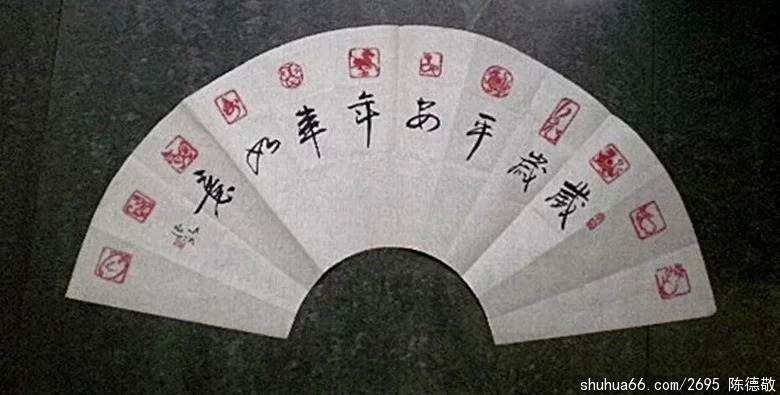 歲歲平安年年如意
shuhua66.com/2695 陈德敬